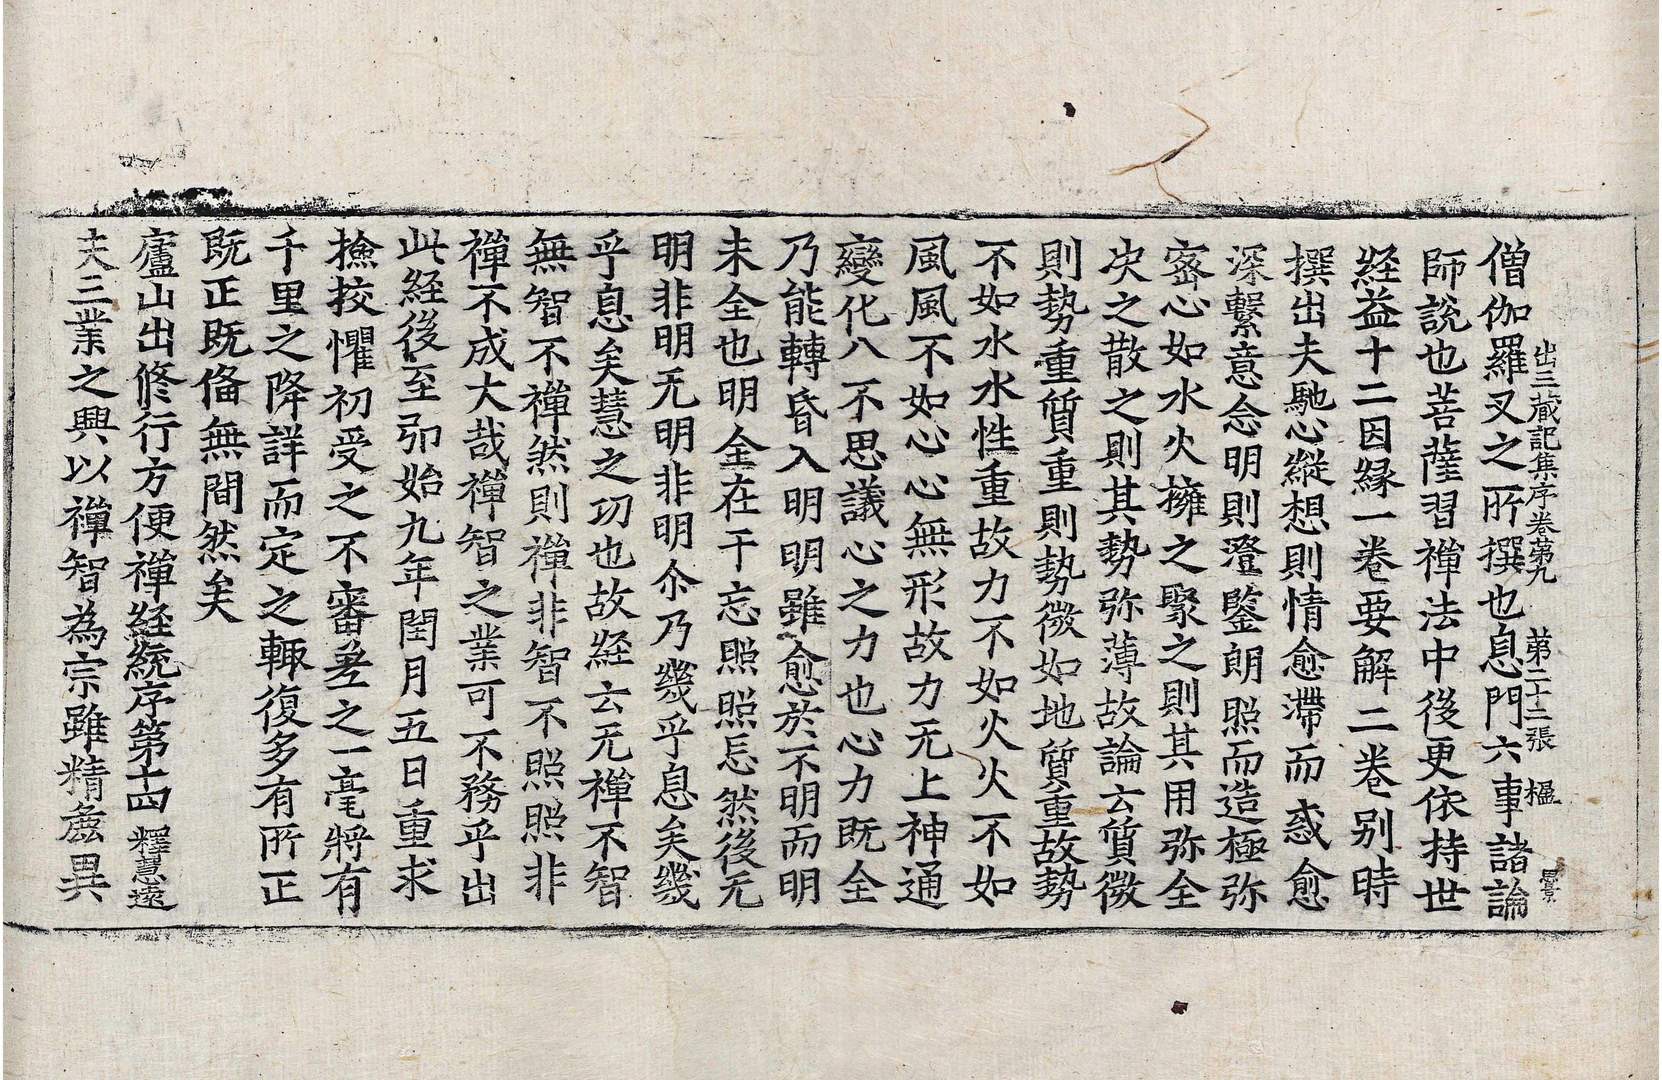 出三藏記集序卷第九　第二十二張　榲　景
僧伽羅叉之所撰也息門六事諸論
師說也菩薩習禪法中後更依持世
経益十二因縁一卷要解二卷别時
撰出夫馳心縱想則情愈滯而惑愈
深繫意念明則澄鑒朗照而造極弥
密心如水火擁之聚之則其用弥全
决之散之則其勢弥薄故論云質微
則勢重質重則勢微如地質重故勢
不如水水性重故力不如火火不如
風風不如心心無形故力无上神通
變化八不思議心之力也心力既全
乃能轉昏入明明雖愈於不明而明
未全也明全在于忘照照忘然後无
明非明无明非明尒乃幾乎息矣幾
乎息矣慧之功也故経云无禪不智
無智不禪然則禪非智不照照非
禪不成大哉禪智之業可不務乎出
此経後至卯始九年閏月五日重求
撿挍懼初受之不審差之一毫將有
千里之降詳而定之輙復多有所正
既正既俻無間然矣
廬山出修行方便禪経統序第十四　釋慧遠
夫三業之興以禪智為宗雖精麁異